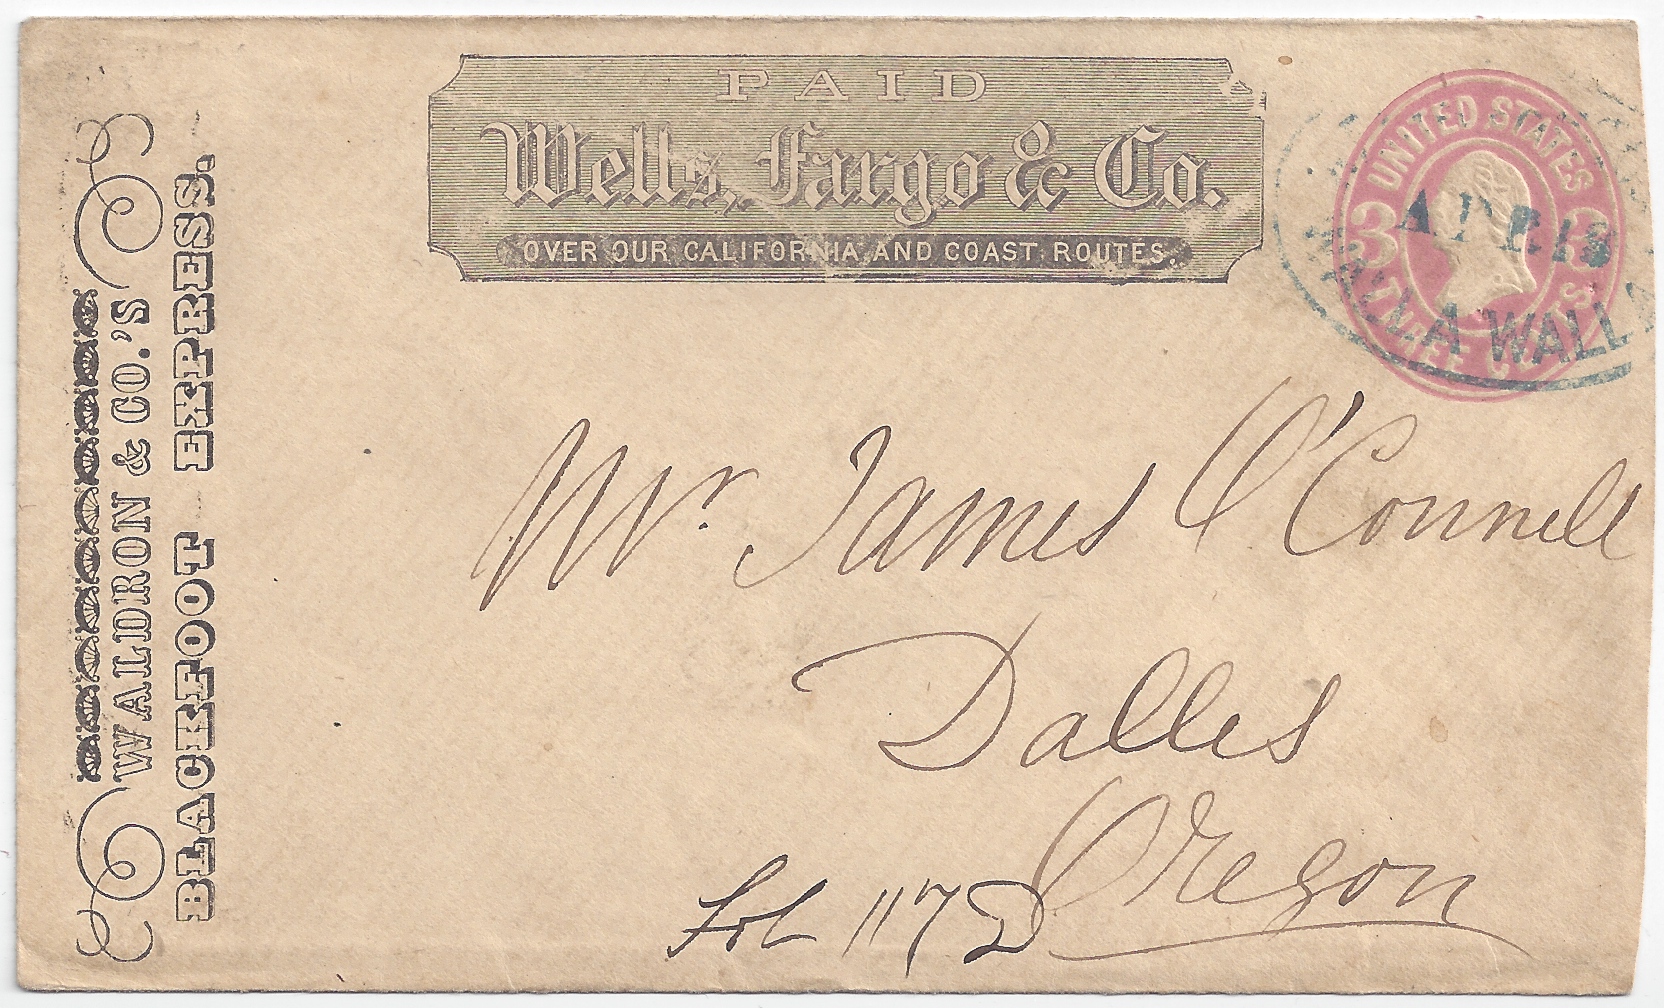 PAID
Wells, Fargo & Co.
OVER OUR CALIFORNIA AND COAST ROUTES.
UNITED STATES
3 3
THREE CENTS
APR 18
WALLA WALLA
WALDRON & CO.'S
BLACKFOOT EXPRESS.
Mr. James O'Connell
Dalles
Oregon
Fol 117 D